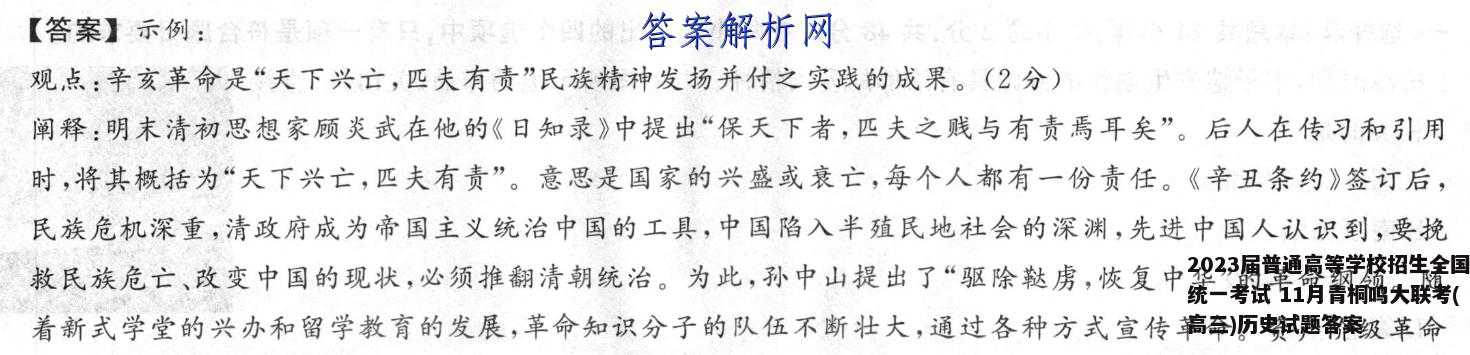 答案解析网
【答案】示例:
观点:辛亥革命是“天下兴亡,匹夫有责”民族精神发扬并付之实践的成果。(2分)
阐释:明末清初思想家顾炎武在他的《日知录》中提出“保天下者,匹夫之贱与有责焉耳矣”。后人在传习和引用
时,将其概括为“天下兴亡,匹夫有责”。意思是国家的兴盛或衰亡,每个人都有一份责任。《辛丑条约》签订后,
民族危机深重,清政府成为帝国主义统治中国的工具,中国陷入半殖民地社会的深渊,先进中国人认识到,要挽
救民族危亡、改变中国的现状,必须推翻清朝统治。为此,孙中山提出了“驱除鞑虏,恢复中华”的革命纲领。随
着新式学堂的兴办和留学教育的发展,革命知识分子的队伍不断壮大,通过各种方式宣传革命。资产阶级革命
2023届普通高等学校招生全国
统一考试 11月青桐鸣大联考(
高三)历史试题答案